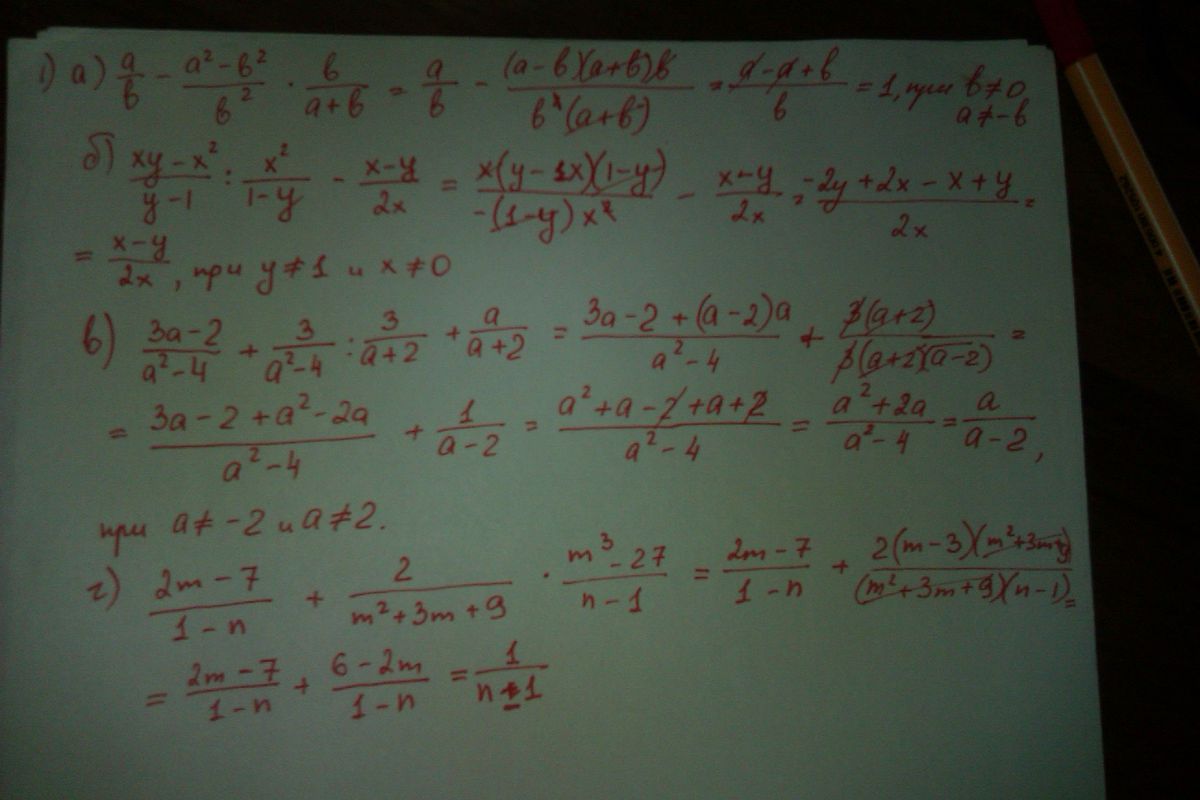 1) а) a/b − (a² − b²)/b² · b/(a+b) = a/b − (a−b)(a+b)b/(b²(a+b)) = (a−a+b)/b = 1, при b≠0 a≠−b
б) (xy − x²)/(y−1) : x²/(1−y) − (x−y)/(2x) = x(y−x)(1−y)/(−(1−y)x²) − (x−y)/(2x) = (−2y+2x−x+y)/(2x) =
= (x−y)/(2x), при y≠1 и x≠0
в) (3a−2)/(a²−4) + 3/(a²−4) : 3/(a+2) + a/(a+2) = (3a−2+(a−2)a)/(a²−4) + 3(a+2)/(3(a+2)(a−2)) =
= (3a−2+a²−2a)/(a²−4) + 1/(a−2) = (a²+a−2+a+2)/(a²−4) = (a²+2a)/(a²−4) = a/(a−2),
при a≠−2 и a≠2.
г) (2m−7)/(1−n) + 2/(m²+3m+9) · (m³−27)/(n−1) = (2m−7)/(1−n) + 2(m−3)(m²+3m+9)/((m²+3m+9)(n−1)) =
= (2m−7)/(1−n) + (6−2m)/(1−n) = 1/(n−1)